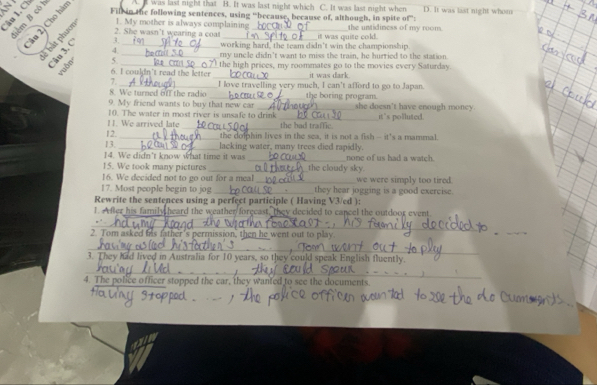 A. It was last night that B. It was last night which C. It was last night when D. It was last night whom
Fill in the following sentences, using "because, because of, although, in spite of":
1. My mother is always complaining because of the untidiness of my room.
2. She wasn't wearing a coat in spite of it was quite cold.
3. in spite of working hard, the team didn't win the championship.
4. because my uncle didn't want to miss the train, he hurried to the station.
5. because of the high prices, my roommates go to the movies every Saturday.
6. I couldn't read the letter because it was dark.
7. Although I love travelling very much, I can't afford to go to Japan.
8. We turned off the radio because of the boring program.
9. My friend wants to buy that new car Although she doesn't have enough money.
10. The water in most river is unsafe to drink because it's polluted.
11. We arrived late because of the bad traffic.
12. although the dolphin lives in the sea, it is not a fish – it's a mammal.
13. because of lacking water, many trees died rapidly.
14. We didn't know what time it was because none of us had a watch.
15. We took many pictures although the cloudy sky.
16. We decided not to go out for a meal because we were simply too tired.
17. Most people begin to jog because they hear jogging is a good exercise.
Rewrite the sentences using a perfect participle ( Having V3/ed ):
1. After his family heard the weather forecast, they decided to cancel the outdoor event.
having heard the forecast, his family decided to ....
2. Tom asked his father's permission, then he went out to play.
having asked his father's ...., Tom went out to play
3. They had lived in Australia for 10 years, so they could speak English fluently.
having lived ...., they could speak ....
4. The police officer stopped the car, they wanted to see the documents.
Having stopped ...., the police officer wanted to see the documents..